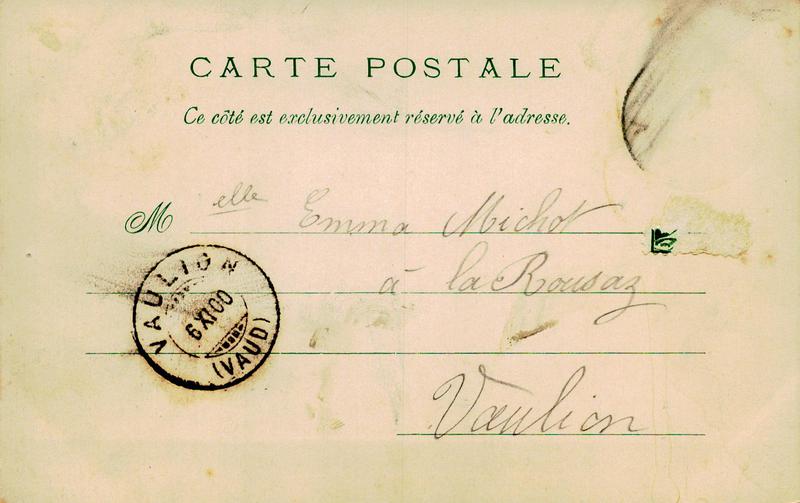 CARTE POSTALE
Ce côté est exclusivement réservé à l'adresse.
M elle Emma Michot
à la Rousaz
Vaulion
VAULION
6 XI 00
(VAUD)